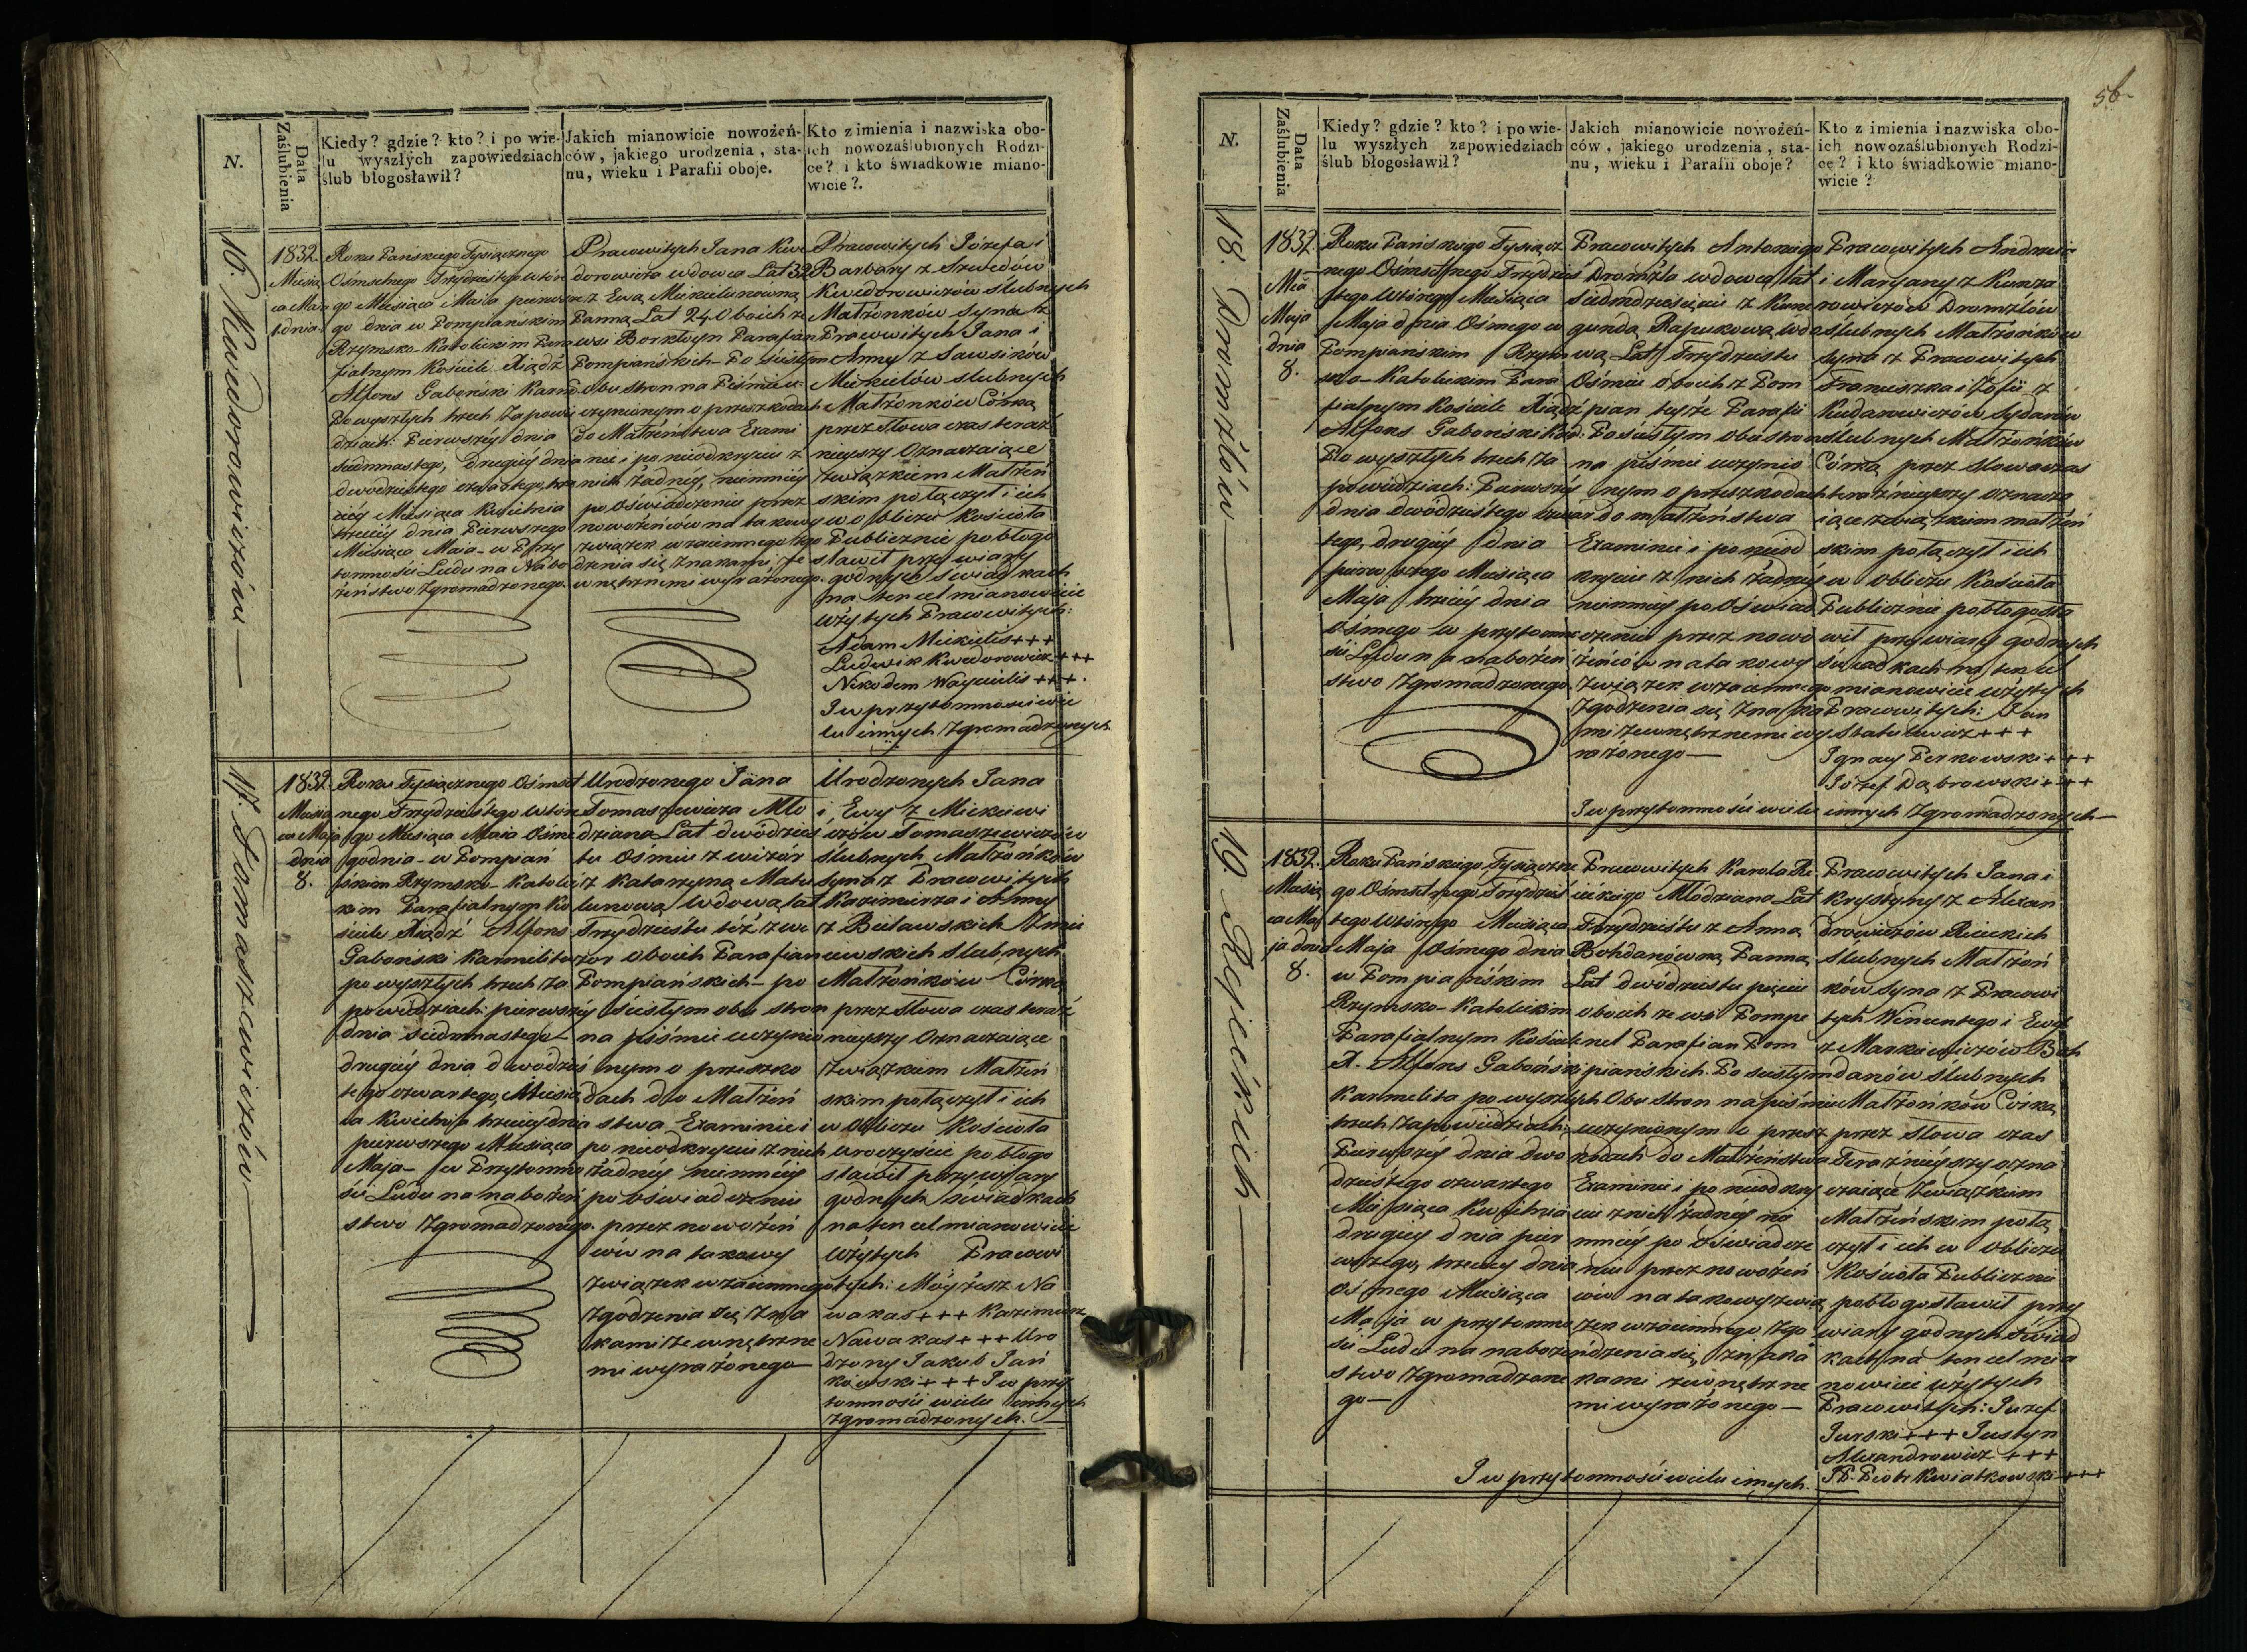 N.
Data Zaślubienia
Kiedy? gdzie? kto? i po wie-
lu wyszłych zapowiedziach
ślub błogosławił?
Jakich mianowicie nowożeń-
ców, jakiego urodzenia, sta-
nu, wieku i Parafii oboje.
Kto z imienia i nazwiska obo-
ich nowozaślubionych Rodzi-
ce? i kto świadkowie miano-
wicie?.
16. Kwedorowiczów —
1832.
Miesią
ca Maja
1. dnia
Roku Pańskiego Tysiącznego
Ośmsetnego Trzydziestego wtóre
go Miesiąca Maia pierwsze
go dnia w Pompiańskim
Rzymsko-Katolickim Para
fialnym Kościele Xiądz
Alfons Gaboński Karm.
Po wyszłych trzech zapowie
dziach: Pierwszéy dnia
siedmnastego, drugiéy dnia
dwódziestego czwartego, trze
ciéy Miesiąca Kwietnia
trzeciéy dnia Pierwszego
Miesiąca Maia - w Przy
tomności Ludu na Nabo
żeństwo zgromadzonego.
Pracowitych Jana Kwe
dorowicza wdowca Lat 32
z Ewą Mickielunówną
Panną Lat 24 Oboich ze
wsi Borklojn Parafian
Pompiańskich - Po ścisłym
obu stron na Piśmie u-
czynionym o przeszkodach
do Małżeństwa Exami
nie i po nieodkryciu z
nich żadnéy, niemniéy
po oświadczeniu przez
nowożeńców na takowy
związek wzaiemnego zgo
dzenia się znakami ze
wnętrznemi wyrażonego.
Pracowitych Józefa i
Barbary z Szwedów
Kwedorowiczów ślubnych
Małżonków Syna z
Pracowitych Jana i
Anny z Sawsików
Mickielów ślubnych
Małżonków Córką
przez słowa czas teraź
nieyszy Oznaczaiące
związkiem Małżeń
skim połączył i ich
w obliczu Kościoła
Publicznie pobłogo
sławił przy wiary
godnych świadkach
na ten cel mianowicie
użytych Pracowitych:
Adam Mickielis +++
Ludwik Kwedorowicz +++
Nikodem Waycielis +++.
I w przytomności wie
lu innych zgromadzonych
17. Tomaszewiczów —
1832.
Miesią
ca Maja
dnia
8.
Roku Tysiącznego Ośmset
nego Trzydziestego wtóre
go Miesiąca Maia Ósme
go dnia - w Pompiań
skim Rzymsko-Katolic
kim Parafialnym Ko
ściele Xiądz Alfons
Gaboński Karmelita
po wyszłych trzech za
powiedziach: pierwszéy
dnia siedmnastego
drugiéy dnia dwódzies
tego czwartego Miesią
ca Kwietnia trzeciéy dnia
pierwszego Miesiąca
Maja - w Przytomno
ści Ludu na nabożeń
stwo zgromadzonego.
Urodzonego Jana
Tomaszewicza Mło
dziana Lat dwódzies
tu Ośmiu z wizór
z Katarzyną Matu
lunową wdową lat
Trzydziestu też z wi
zor oboich Parafian
Pompiańskich - po
ścisłym obu stron
na piśmie uczynio
nym o przeszko
dach do Małżeń
stwa Examinie i
po nieodkryciu z nich
żadnéy niemniéy
po oświadczeniu
przez nowożeń
ców na takowy
związek wzaiemnego
zgodzenia się zna
kami zewnętrzne
mi wyrażonego —
Urodzonych Jana
i Ewy z Mickiewi
czów Tomaszewiczów
ślubnych Małżonków
syna z Pracowitych
Kazimierza i Anny
z Bielawskich
ślubnych
Małżonków Córką
przez słowa czas teraź
nieyszy Oznaczaiące
związkiem Małżeń
skim połączył i ich
w obliczu Kościoła
uroczyście pobłogo
sławił przy wiary
godnych świadkach
na ten cel mianowicie
użytych Pracowi
tych: Moyżesz Na
wakas +++ Kazimierz
Nawakas +++ Uro
dzony Jakub Jan
kowski +++ I w przy
tomności wielu innych
zgromadzonych. —
56
N.
Data Zaślubienia
Kiedy? gdzie? kto? i po wie-
lu wyszłych zapowiedziach
ślub błogosławił?
Jakich mianowicie nowożeń-
ców, jakiego urodzenia, sta-
nu, wieku i Parafii oboje?
Kto z imienia i nazwiska obo-
ich nowozaślubionych Rodzi-
ce? i kto świadkowie miano-
wicie?
18. Dromzlów —
1832.
Mca
Maja
dnia
8.
Roku Pańskiego Tysiącz
nego Ośmsetnego Trzydzies
tego wtórego Miesiąca
Maja dnia Ósmego w
Pompiańskim Rzym
sko-Katolickim Para
fialnym Kościele Xiądz
Alfons Gaboński Kar.
Po wyszłych trzech za
powiedziach: Pierwszéy
dnia dwódziestego czwar
tego, drugiéy dnia
pierwszego Miesiąca
Maja trzeciéy dnia
ósmego w przytomno
ści Ludu na nabożeń
stwo zgromadzonego.
Pracowitych Antoniego
Dromzla wdowca lat
siedmdziesięciu z Kune
gundą Rapukową wdo
wą Lat Trzydziestu
Ośmiu oboich z Pom
pian teyże Parafii
Po ścisłym obu stron
na piśmie uczynio
nym o przeszkodach
do małżeństwa
Examinie i po nieod
kryciu z nich żadnéy
niemniéy po oświad
czeniu przez nowo
żeńców na takowy
związek wzaiemnego
zgodzenia się znaka
mi zewnętrznemi wy
rażonego —
Pracowitych Andrzeia
i Maryany z Kunza
rowiczów Dromzlów
ślubnych Małżonków
syna z Pracowitych
Franciszka i Zofii z
Kudarowiczów Sydanów
ślubnych Małżonków
Córką przez słowa czas
teraźnieyszy oznacza
iące związkiem małżeń
skim połączył i ich
w obliczu Kościoła
Publicznie pobłogosła
wił przy wiary godnych
świadkach na ten cel
mianowicie użytych
Pracowitych: Jan
Statulewicz +++
Ignacy Perkowski +++
Józef Dąbrowski +++
I w przytomności wielu innych zgromadzonych —
19. Rycickich —
1832.
Miesią
ca Ma
ja dnia
8.
Roku Pańskiego Tysiączne
go Ośmsetnego Trzydzies
tego wtórego Miesiąca
Maja Ósmego dnia
w Pompiańskim
Rzymsko-Katolickim
Parafialnym Kościele
X. Alfons Gaboński
Karmelita po wyszłych
trzech zapowiedziach:
Pierwszéy dnia dwó
dziestego czwartego
Miesiąca Kwietnia
drugiéy dnia pier
wszego, trzeciéy dnia
ósmego Miesiąca
Maja w przytomno
ści Ludu na nabożeń
stwo zgromadzone
go —
Pracowitych Karola Ri
cickiego Młodziana Lat
Trzydziestu z Anną
Bohdanówną Panną
Lat dwódziestu pięciu
oboich ze wsi Pompe
nel Parafian Pom
piańskich. Po ścisłym
Obu stron na piśmie
uczynionym o przesz
kodach do Małżeństwa
Examinie i po nieodkry
ciu z nich żadnéy nie
mniéy po oświadcze
niu przez nowożeń
ców na takowy zwią
zek wzaiemnego zgo
dzenia się zna
kami zewnętrzne
mi wyrażonego —
Pracowitych Jana i
Krystyny z Alexan
drowiczów Ricickich
ślubnych Małżon
ków Syna z Pracowi
tych Wincentego i Ewy
z Markiewiczów Boh
danów ślubnych
Małżonków Córką
przez słowa czas
Teraźnieyszy ozna
czaiące związkiem
Małżeńskim połą
czył i ich w obliczu
Kościoła Publicznie
pobłogosławił przy
wiary godnych świad
kach na ten cel mia
nowicie użytych
Pracowitych: Jozef
Jurski +++ Justyn
Alexandrowicz +++
Piotr Kwiatkowski +++
I w przytomności wielu innych.